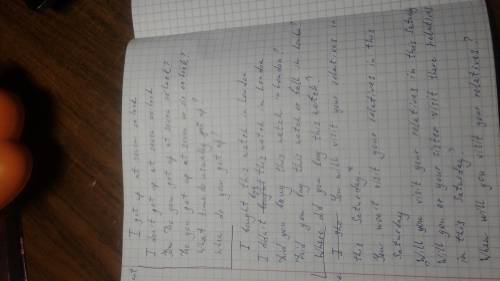 I get up at seven oclock
I don't get up at seven oclock
Do you get up at seven oclock?
Do you get up at seven or six oclock?
What time do usually get up?
When do your get up?
I bought this watch in London
I didn't buy this watch in London
Did you buy this watch in London?
Did you buy this watch or ball in London?
Where did you buy this watch?
You will visit your relatives in
this Saturday
You won't visit your relatives in this
Saturday
Will you visit your relatives in this Saturday
Will you or your sister visit relatives
in this Saturday?
When will you visit your relatives?